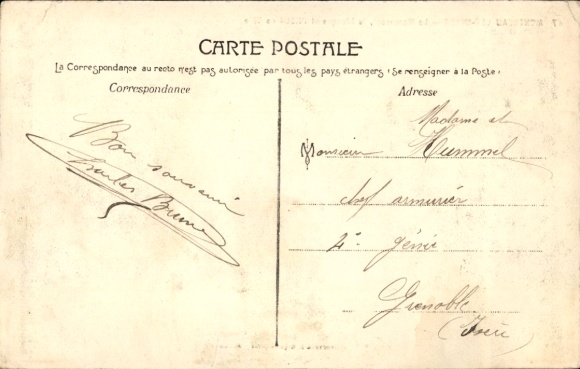 CARTE POSTALE
La Correspondance au recto n'est pas autorisée par tous les pays étrangers (Se renseigner à la Poste)
Correspondance
Adresse
Bon souvenir
Charles Brune
Madame et
Monsieur Hummel
chef armurier
4e génie
Grenoble
(Isère